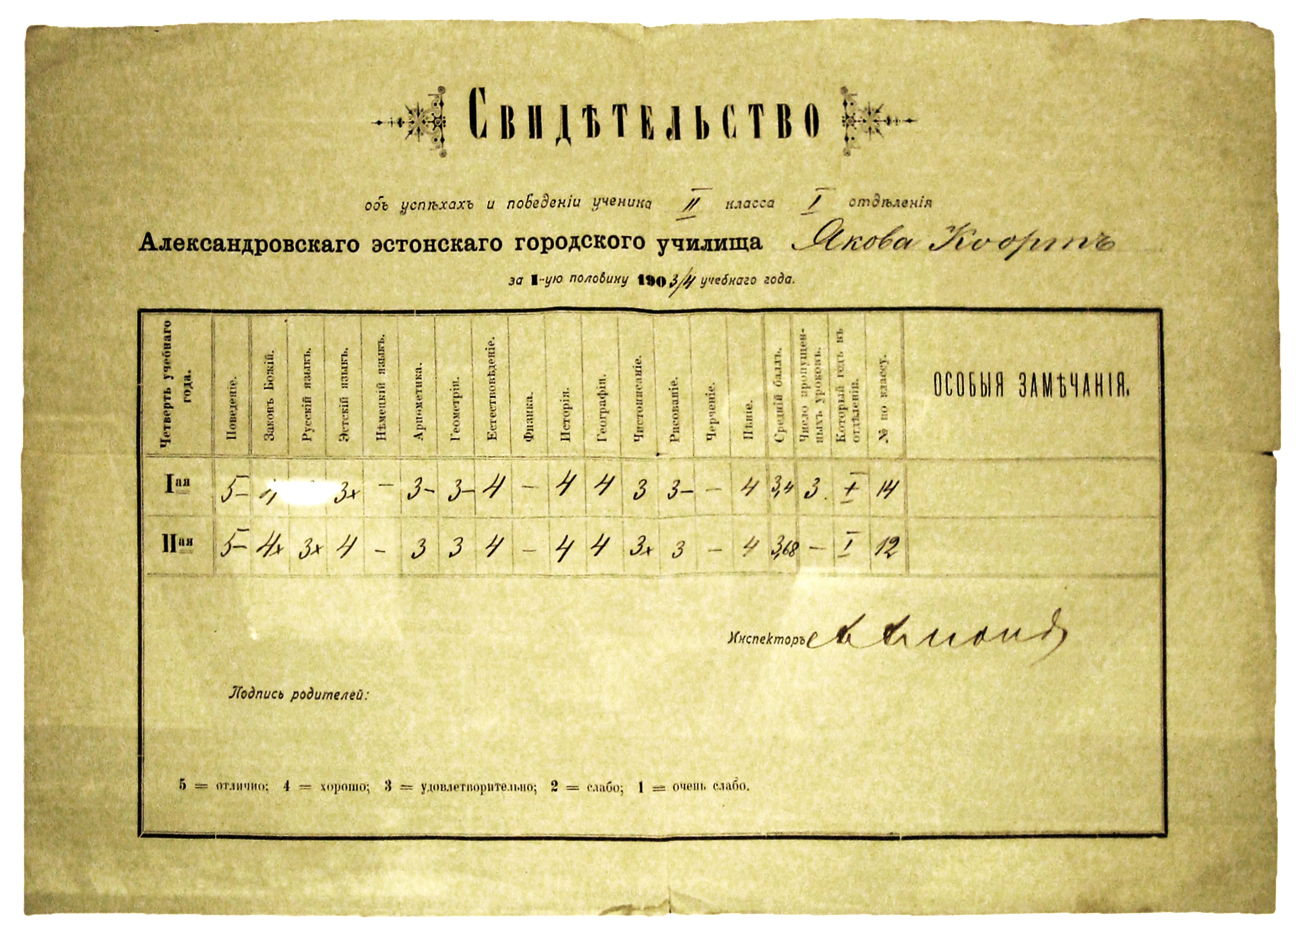 Свидѣтельство
объ успѣхахъ и поведеніи ученика II класса I отдѣленія
Александровскаго эстонскаго городского училища Якова Коортъ
за I-ую половину 1903/4 учебнаго года.
Четверть учебнаго года. Поведеніе. Законъ Божій. Русскій языкъ. Эстскій языкъ. Нѣмецкій языкъ. Ариѳметика. Геометрія. Естествовѣденіе. Физика. Исторія. Географія. Чистописаніе. Рисованіе. Черченіе. Пѣніе. Средній баллъ. Число пропущенныхъ уроковъ. Который годъ въ отдѣленіи. № по классу. ОСОБЫЯ ЗАМѢЧАНІЯ.
Iая 5- 3x – 3- 3- 4 – 4 4 3 3- – 4 3,4 3. I 14
IIая 5- 4x 3x 4 – 3 3 4 – 4 4 3x 3 – 4 3,68 – I 12
Инспекторъ
Подпись родителей:
5 = отлично; 4 = хорошо; 3 = удовлетворительно; 2 = слабо; 1 = очень слабо.